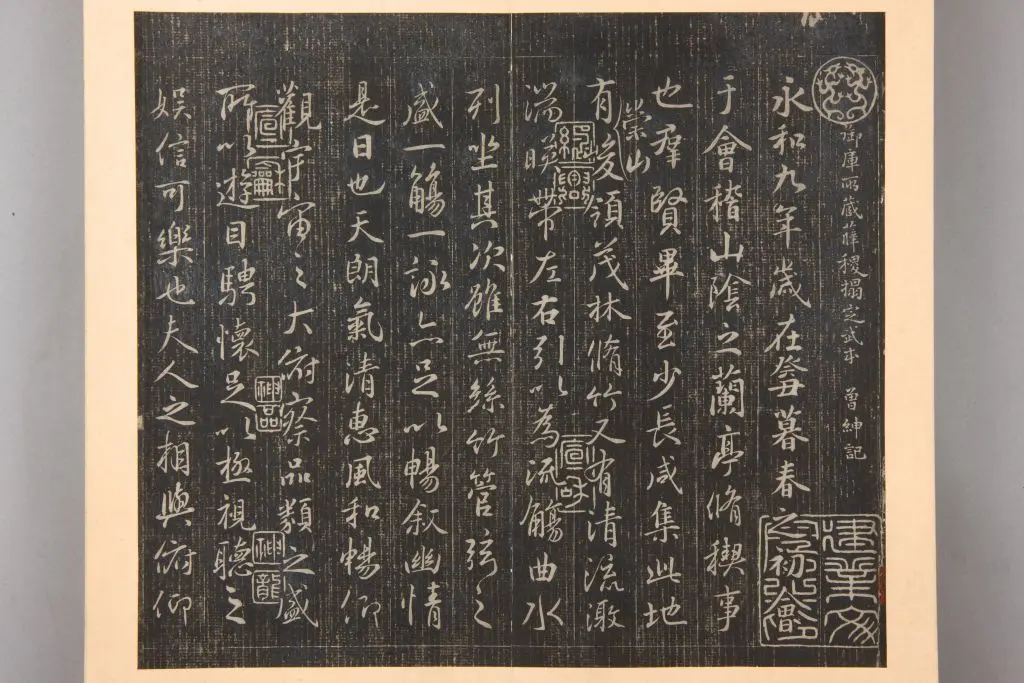 御庫所藏薛稷搨定武本 曾紳記
永和九年歲在癸丑暮春之初會
于會稽山陰之蘭亭脩稧事
也羣賢畢至少長咸集此地
有崇山峻領茂林脩竹又有清流激
湍暎帶左右引以為流觴曲水
列坐其次雖無絲竹管弦之
盛一觴一詠亦足以暢敘幽情
是日也天朗氣清惠風和暢仰
觀宇宙之大俯察品類之盛
所以遊目騁懷足以極視聽之
娛信可樂也夫人之相與俯仰
紹興
宣和
神品
神龍